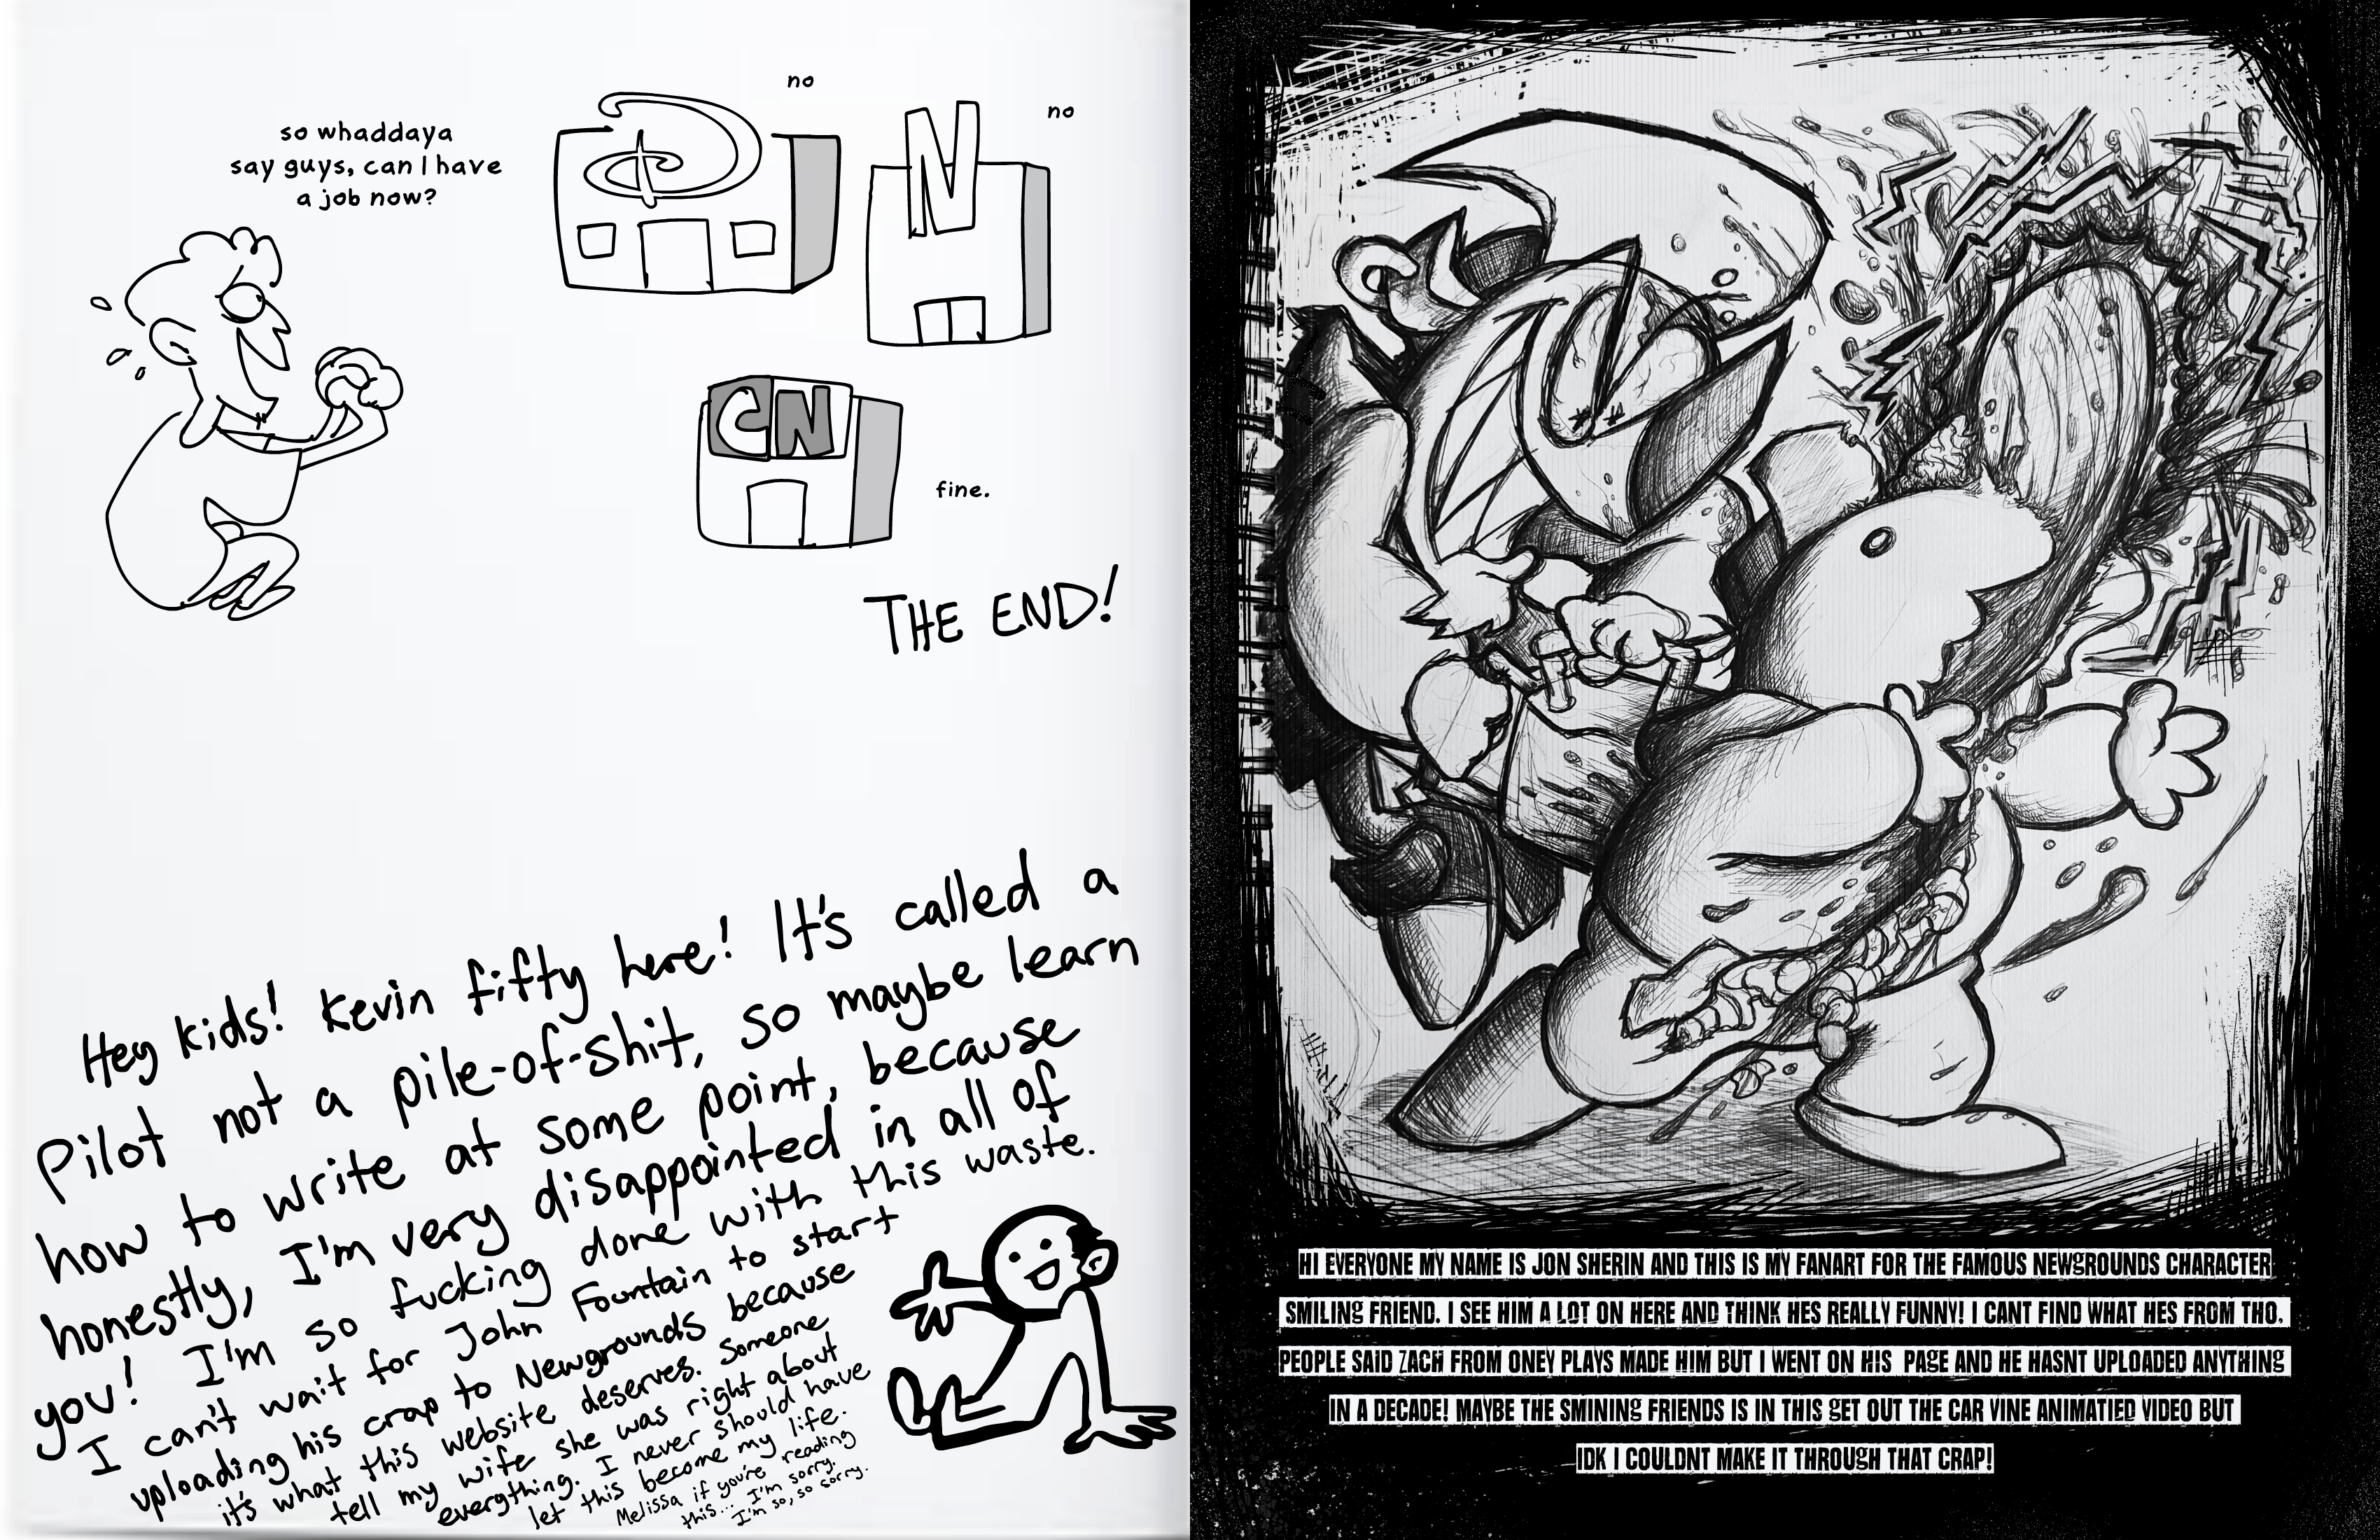 so whaddaya
say guys, can I have
a job now?
no
D
N
no
CN
fine.
THE END!
Hey kids! Kevin fifty here! It's called a
Pilot not a pile-of-shit, so maybe learn
how to write at some point, because
honestly, I'm very disappointed in all of
you! I'm so fucking done with this waste.
I can't wait for John Fountain to start
uploading his crap to Newgrounds because
it's what this website deserves. Someone
tell my wife she was right about
everything. I never should have
let this become my life.
Melissa if you're reading
this... I'm sorry.
I'm so, so sorry.
HI EVERYONE MY NAME IS JON SHERIN AND THIS IS MY FANART FOR THE FAMOUS NEWgROUNDS CHARACTER
SMILINg FRIEND. I SEE HIM A LOT ON HERE AND THINK HES REALLY FUNNY! I CANT FIND WHAT HES FROM THO.
PEOPLE SAID ZACH FROM ONEY PLAYS MADE HIM BUT I WENT ON HIS PAgE AND HE HASNT UPLOADED ANYTHINg
IN A DECADE! MAYBE THE SMININg FRIENDS IS IN THIS gET OUT THE CAR VINE ANIMATIED VIDEO BUT
IDK I COULDNT MAKE IT THROUgH THAT CRAP!